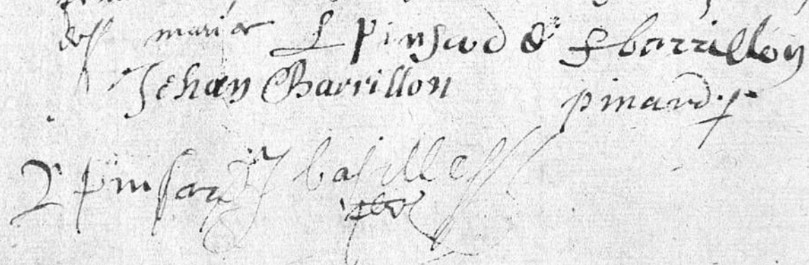 desd mariés L pinsard & f barrillon
Jehan Barrillon pinard
L pinsard J basille